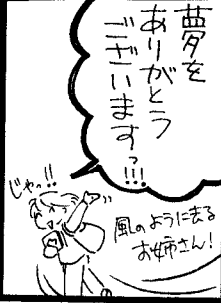 夢を
ありがとう
ございますっ!!!
じゃっ!!
風のように去る
お姉さん!